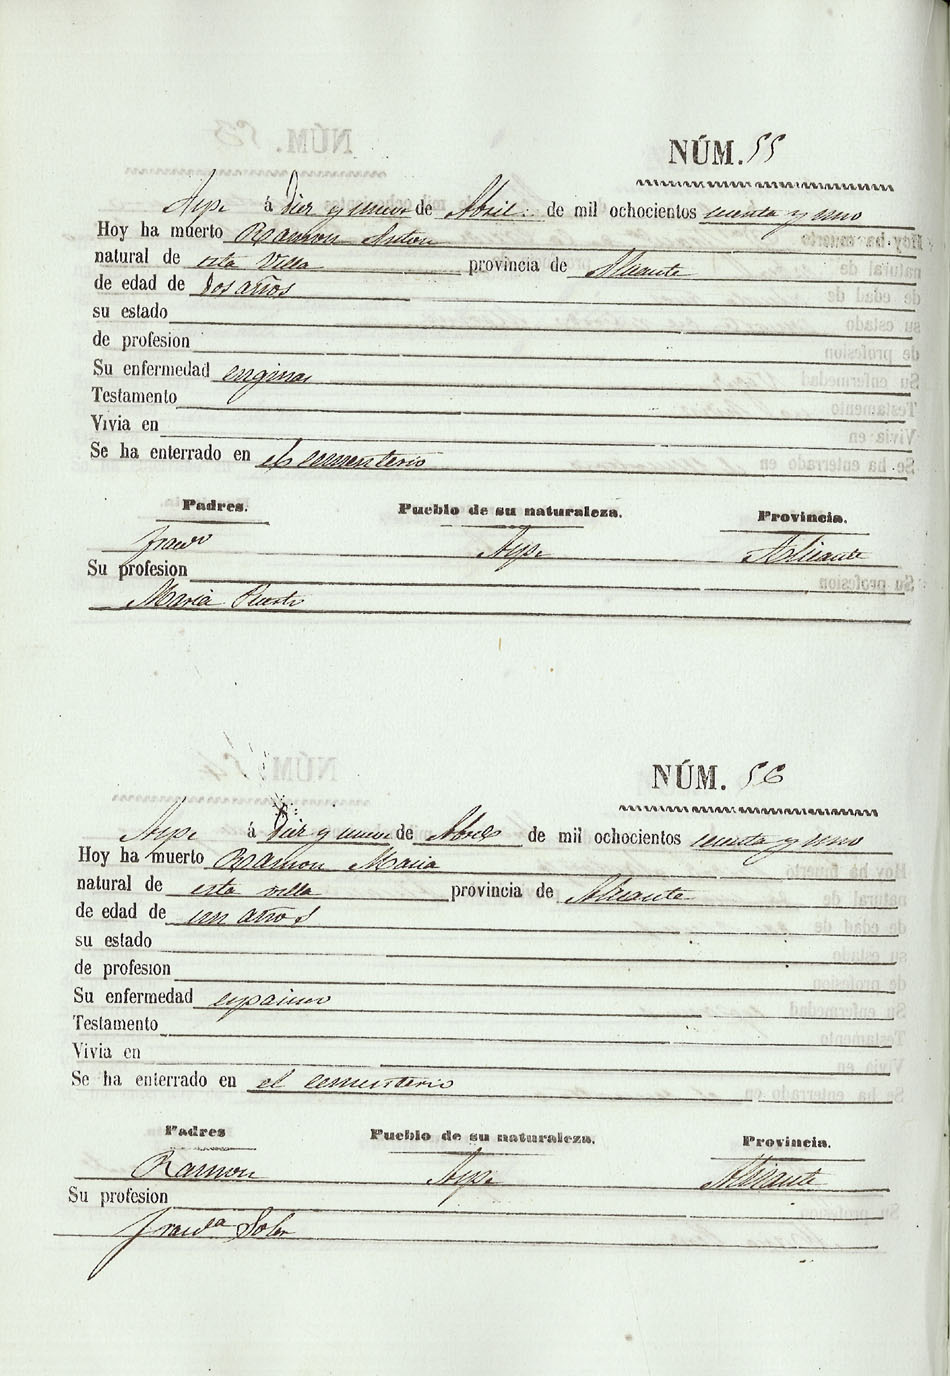 NÚM. 55
Aspe á Diez y nueve de Abril de mil ochocientos sesenta y uno
Hoy ha muerto Ramon Anton
natural de esta Villa provincia de Alicante
de edad de dos años
su estado
de profesion
Su enfermedad anginas
Testamento
Vivia en
Se ha enterrado en el cementerio
Padres. Pueblo de su naturaleza. Provincia.
Franco Aspe Alicante
Su profesion
Maria
NÚM. 56
Aspe á Diez y nueve de Abril de mil ochocientos sesenta y uno
Hoy ha muerto Ramon Maria
natural de esta villa provincia de Alicante
de edad de un años
su estado
de profesion
Su enfermedad
Testamento
Vivia en
Se ha enterrado en el cementerio
Padres Pueblo de su naturaleza. Provincia.
Ramon Aspe Alicante
Su profesion
Franca Soler